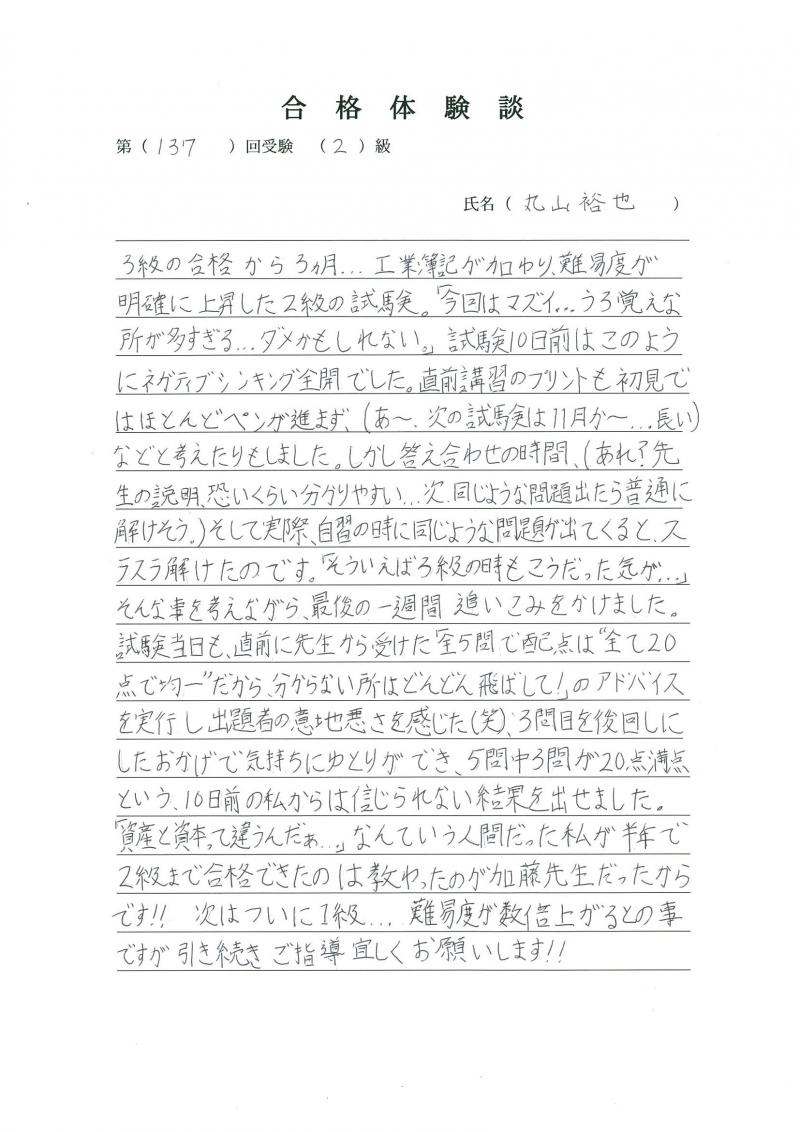 合格体験談
第（137）回受験（2）級
氏名（丸山裕也）
3級の合格から3ヵ月…工業簿記が加わり、難易度が
明確に上昇した2級の試験。「今回はマズイ…うろ覚えな
所が多すぎる…ダメかもしれない。」試験10日前はこのよう
にネガティブシンキング全開でした。直前講習のプリントも初見で
はほとんどペンが進まず、(あ〜、次の試験は11月か〜…長い)
などと考えたりもしました。しかし答え合わせの時間、(あれ?先
生の説明、恐いくらい分かりやすい…次、同じような問題出たら普通に
解けそう。)そして実際、自習の時に同じような問題が出てくると、ス
ラスラ解けたのです。「そういえば3級の時もこうだった気が…」
そんな事を考えながら、最後の一週間 追いこみをかけました。
試験当日も、直前に先生から受けた「全5問で配点は“全て20
点で均一”だから、分からない所はどんどん飛ばして!」のアドバイス
を実行し出題者の意地悪さを感じた(笑)、3問目を後回しに
したおかげで気持ちにゆとりができ、5問中3問が20点満点
という、10日前の私からは信じられない結果を出せました。
「資産と資本って違うんだぁ…」なんていう人間だった私が半年で
2級まで合格できたのは教わったのが加藤先生だったから
です!! 次はついに1級… 難易度が数倍上がるとの事
ですが引き続きご指導宜しくお願いします!!